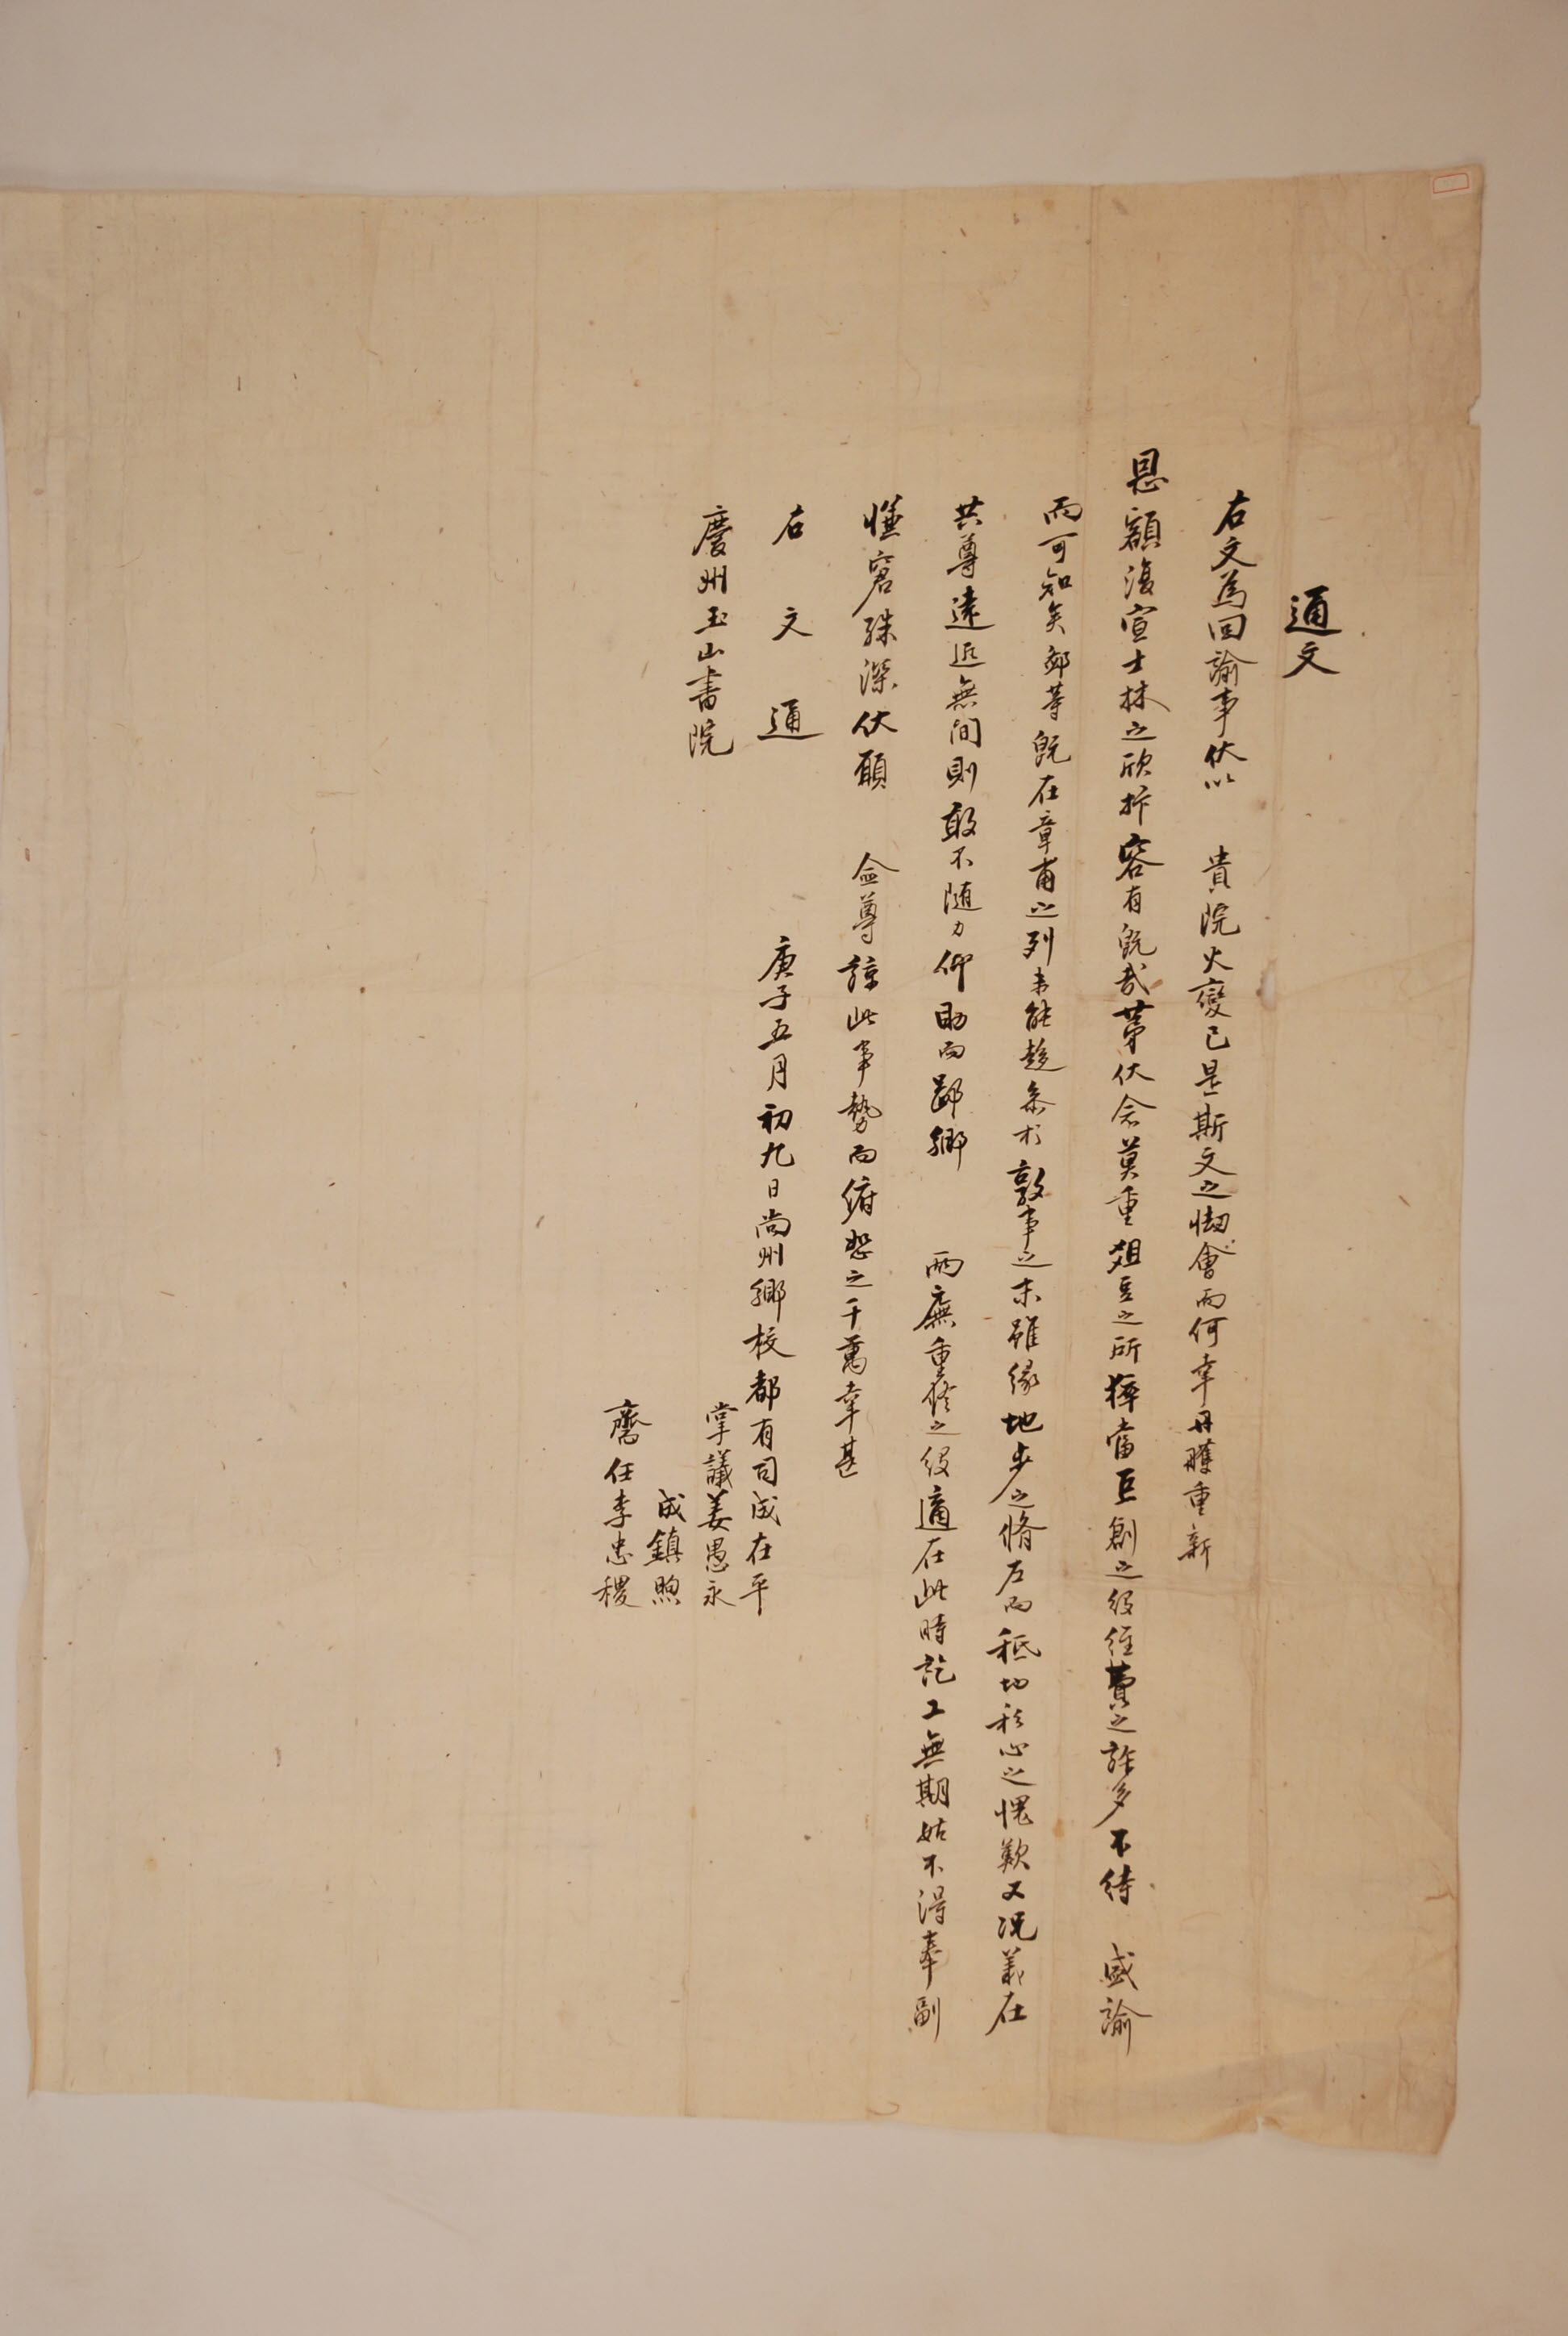 通文
右文爲回諭事伏以 貴院火變已是斯文之㤼會而何幸丹雘重新
恩額復宣士林之欣抃容有旣哉第伏念莫重俎豆之所猝當巨創之役經費之許多不待 盛諭
而可知矣鄙等旣在章甫之列未能趍參於敦事之末雖緣地步之脩左而秪切私心之愧歎又况義在
共尊遠近無間則敢不隨力仰助而鄙鄕 兩廡重修之役適在此時訖工無期姑不得奉副
慚窘殊深伏願 僉尊諒此事勢而俯恕之千萬幸甚
右文通
慶州玉山書院
庚子五月初九日尙州鄕校都有司成在平
掌議姜愚永
成鎭煦
齋任李忠稷